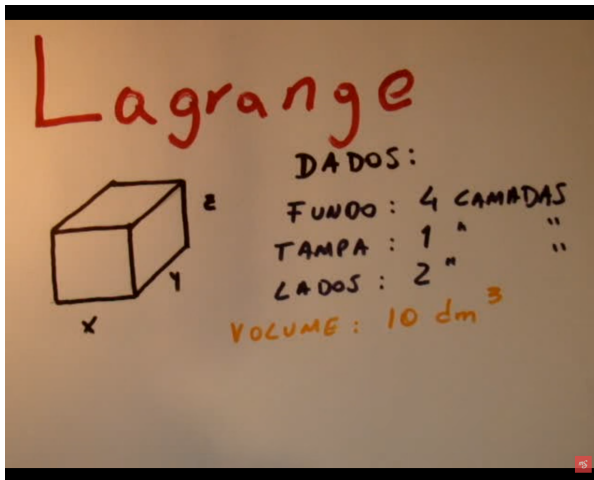 Lagrange
DADOS:
FUNDO: 4 CAMADAS
TAMPA: 1 " "
LADOS: 2 " "
VOLUME: 10 dm³
z
y
x